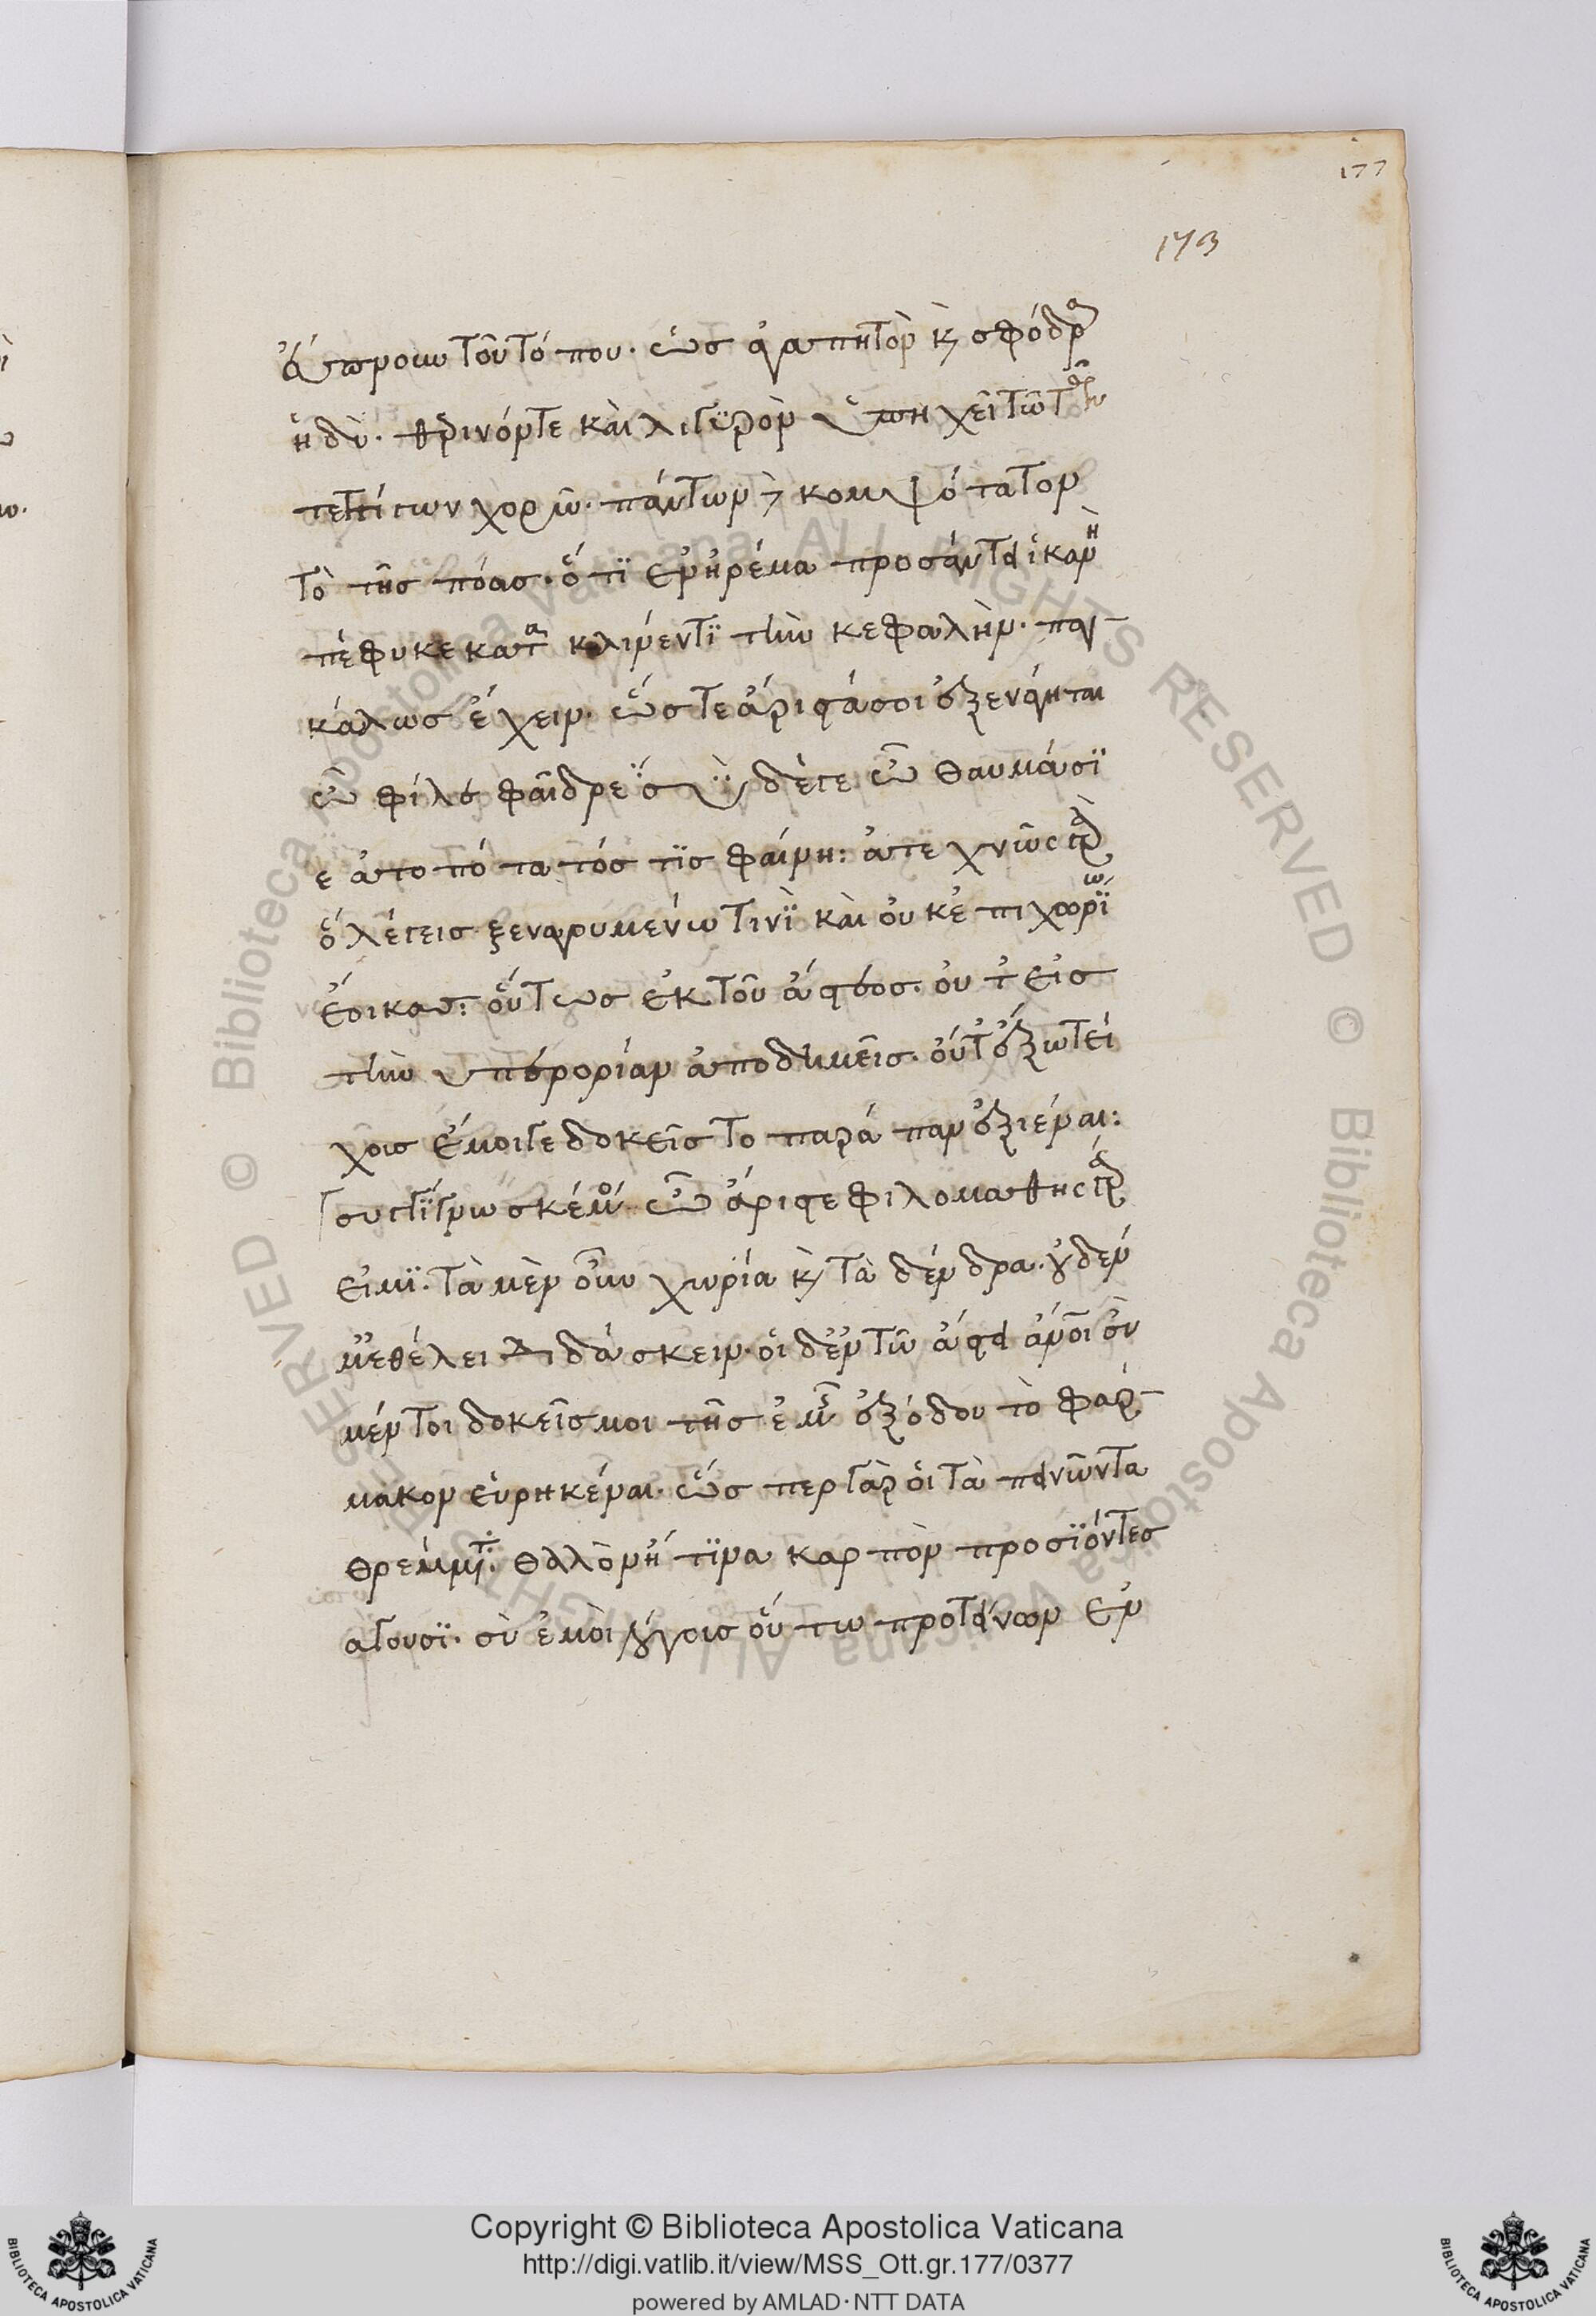 177
173
εὔπνουν τοῦ τόπου. ὡς ἀγαπητὸν κ σφόδρα
ἡδὺ. θερινόν τε καὶ λιγυρὸν ὑπηχεῖ τῶ τῶν
τεττίγων χορῶ. πάντων δὲ κομψότατον
τὸ τῆς πόας. ὅτι ἐν ἠρέμα προσάντει ἱκανὴ
πέφυκε κατα κλινέντι τὴν κεφαλὴν. παγ
κάλως ἔχειν. ὥστε ἄριστά σοι ἐξενάγηται
ὦ φίλε φαῖδρε: σὺ δέγε ὦ θαυμάσι
ε ἀτοπότατός τις φαίνη: ἀτεχνῶς γὰρ
ὃ λέγεις ξεναγουμένω τινὶ καὶ οὐκ ἐπιχωρίω
ἔοικας: οὕτως ἐκ τοῦ ἄστεος. οὔτ εἰς
τὴν ὑπερορίαν ἀποδημεῖς. οὔτ ἔξω τεί
χους ἔμοιγε δοκεῖς το παράπαν ἐξιέναι:
συγγίγνωσκέ μοι ὦ ἄριστε φιλομαθης γάρ
εἰμι. τὰ μὲν οὖν χωρία κ τὰ δένδρα. οὐδέν
μ' ἐθέλει διδάσκειν. οἱ δ' ἐν τῶ ἄστει ἄνοι σὺ
μέντοι δοκεῖς μοι τῆς ἐμῆς ἐξόδου τὸ φάρ
μακον εὑρηκέναι. ὥσπερ γὰρ οἱ τὰ πεινῶντα
θρέμματα θαλλὸν ἤ τινα καρπὸν προσιόντες
ἄγουσι. σὺ ἐμοὶ λόγους οὕτω προτείνων ἐν
Copyright © Biblioteca Apostolica Vaticana
http://digi.vatlib.it/view/MSS_Ott.gr.177/0377
powered by AMLAD·NTT DATA